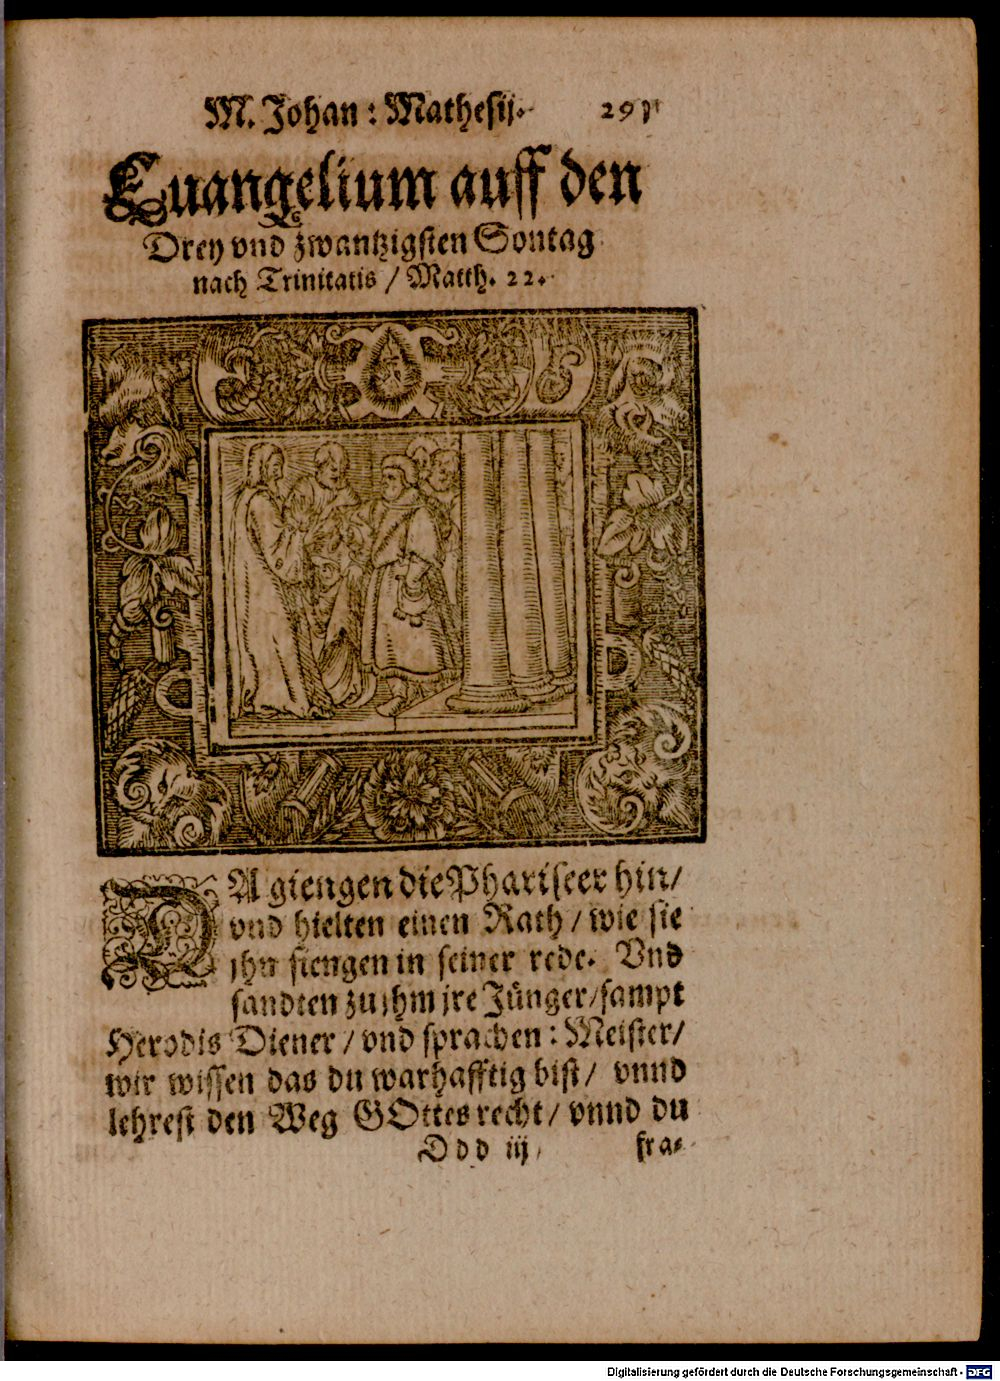 M. Johan: Mathesij.
Euangelium auff den
Drey vnd zwantzigsten Sontag
nach Trinitatis / Matth. 22.
DA giengen die Phariseer hin/
vnd hielten einen Rath / wie sie
jhn fiengen in seiner rede. Vnd
sandten zu jhm jre Jünger/sampt
Herodis Diener / vnd sprachen: Meister/
wir wissen das du warhafftig bist / vnnd
lehrest den Weg GOttes recht / vnnd du
Ddd iij
fra-
Digitalisierung gefördert durch die Deutsche Forschungsgemeinschaft - DFG